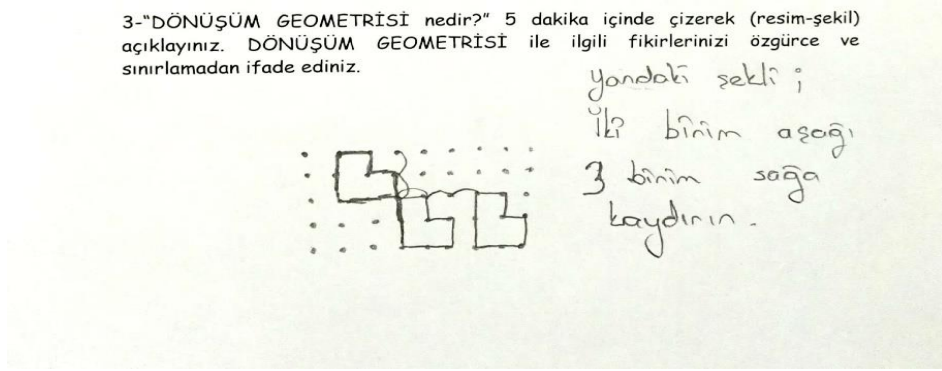 3-“DÖNÜŞÜM GEOMETRİSİ nedir?” 5 dakika içinde çizerek (resim-şekil)
açıklayınız. DÖNÜŞÜM GEOMETRİSİ ile ilgili fikirlerinizi özgürce ve
sınırlamadan ifade ediniz.
yandaki şekli ;
İki birim aşağı
3 birim sağa
kaydırın.